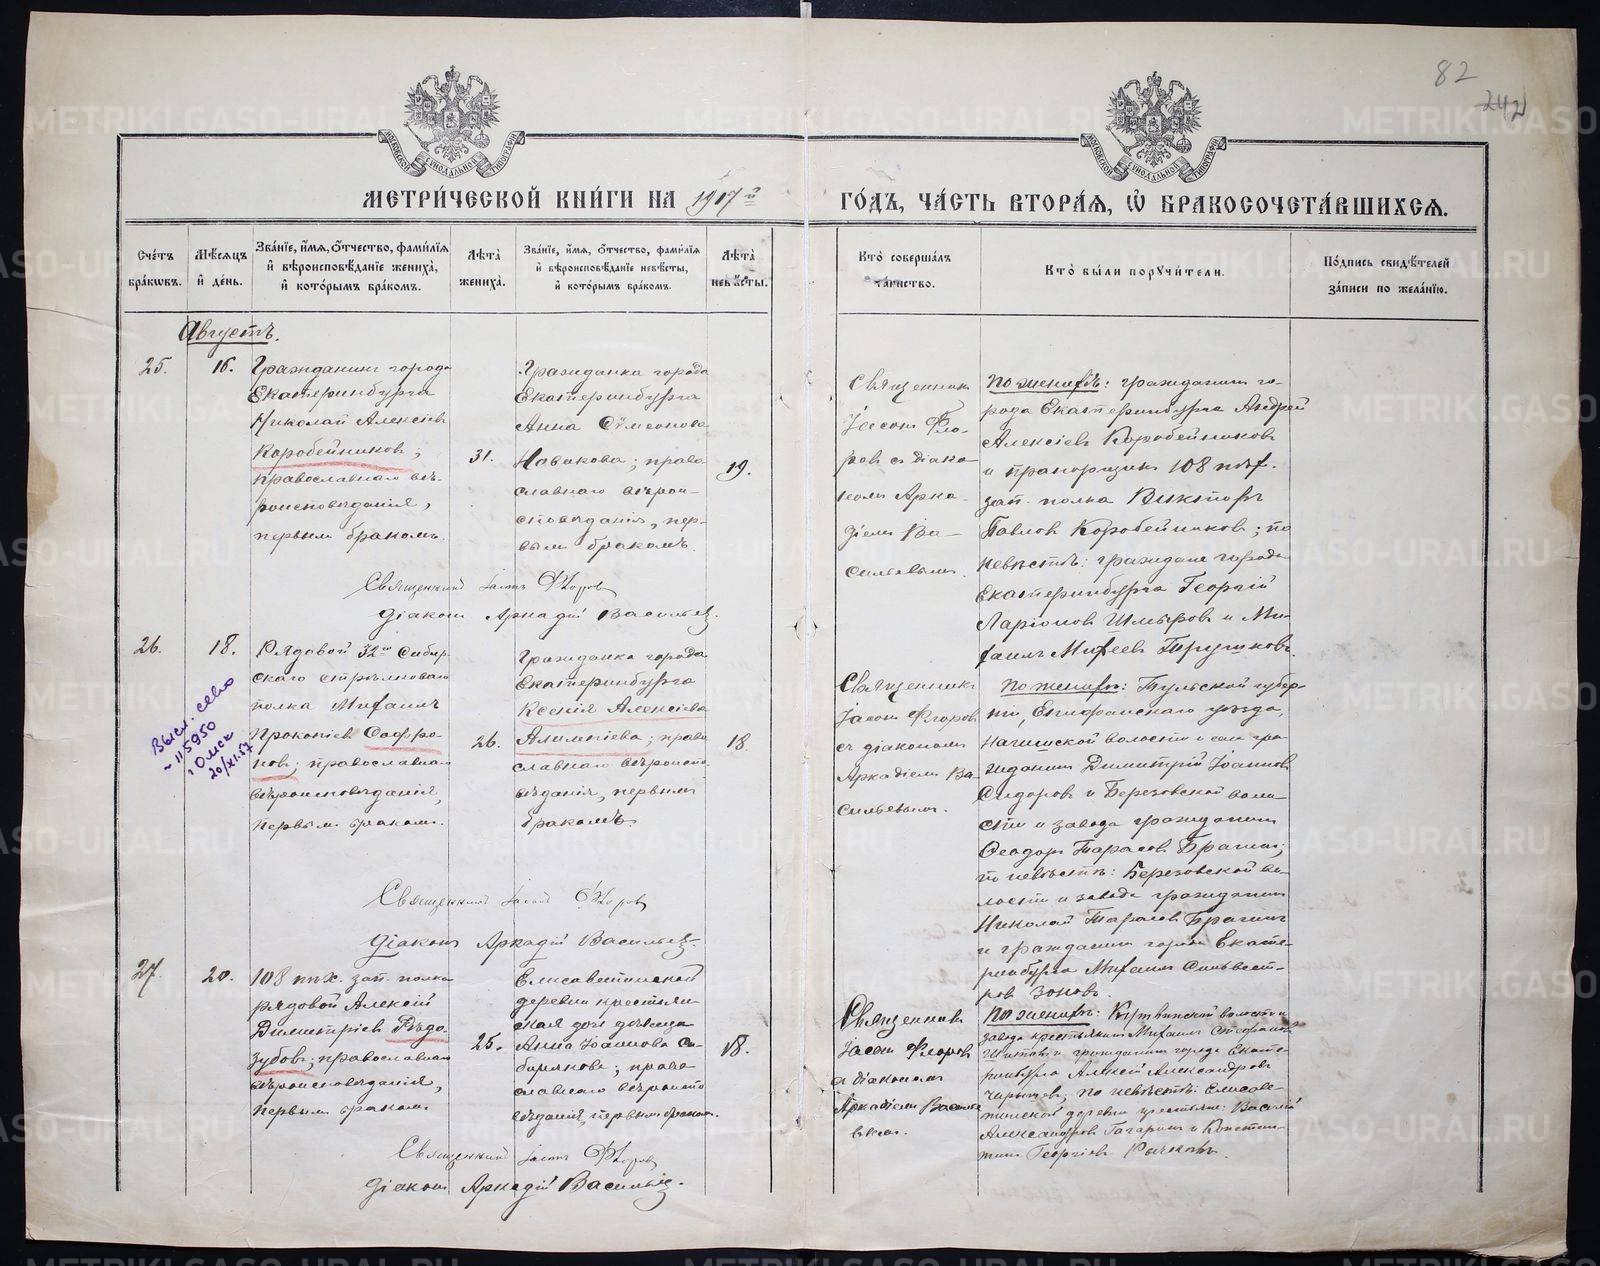 82
242
МОСКОВСКОЙ СѴНОДАЛЬНОЙ ТИПОГРАФІИ
МОСКОВСКОЙ СѴНОДАЛЬНОЙ ТИПОГРАФІИ
МЕТРИ́ЧЕСКОЙ КНИ́ГИ НА 1917й
ГО́ДЪ, ЧА́СТЬ ВТОРА́Я, Ѡ БРАКОСОЧЕТА́ВШИХСЯ.
Сче́тъ бра́кѡвъ.
Мѣ́сяцъ и́ де́нь.
Зва́нїе, и́мя, ѻ́тчество, фами́лїя и҆ вѣроисповѣ́данїе жениха̀, и҆ кото́рымъ бра́комъ.
Лѣ́та жениха̀.
Зва́нїе, и́мя, ѻ́тчество, фами́лїя и҆ вѣроисповѣ́данїе невѣ́сты, и҆ кото́рымъ бра́комъ.
Лѣ́та невѣ́сты.
Кто̀ соверша́лъ та́инство.
Кто̀ бы́ли порꙋчи́тели.
По́дпись свидѣ́телей за́писи по жела́нїю.
Августъ.
25.
16.
Гражданинъ города
Екатеринбурга
Николай Алексѣевъ
Коробейниковъ;
православнаго вѣ-
роисповѣданія,
первымъ бракомъ.
31.
Гражданка города
Екатеринбурга
Анна Сѵмеонова
Новикова; право
славнаго вѣрои-
сповѣданія, пер-
вымъ бракомъ.
19.
Священникъ
Іасонъ Фло-
ровъ съ діако-
номъ Арка-
діемъ Ва-
сильевымъ.
По женихѣ: гражданинъ го-
рода Екатеринбурга Андрей
Алексѣевъ Коробейниковъ
и прапорщикъ 108 пѣх.
зап. полка Викторъ
Павловъ Коробейниковъ; по
невѣстѣ: граждане города
Екатеринбурга Георгій
Ларіоновъ Шмыровъ и Ми-
хаилъ Михеевъ Трушковъ.
Священникъ Іасонъ Флоровъ
Діаконъ Аркадій Васильевъ.
26.
18.
Рядовой 32го Сибир-
скаго стрѣлковаго
полка Михаилъ
Прокопіевъ Сафро
новъ; православнаго
вѣроисповѣданія,
первымъ бракомъ.
26.
Гражданка города
Екатеринбурга
Ксенія Алексѣева
Алимпіева; право
славнаго вѣроиспо
вѣданія, первымъ
бракомъ.
18.
Высл. св-во
- 115950
г. Омск
20/XI.57
Священникъ
Іасонъ Флоровъ
съ діакономъ
Аркадіемъ Ва-
сильевымъ.
По женихѣ: Тульской губер-
ніи, Епифанскаго уѣзда,
волости и села гра-
жданинъ Димитрій Іоанновъ
Сидоровъ и Березовской воло-
сти и завода гражданинъ
Ѳеодоръ Тарасовъ Брагинъ;
по невѣстѣ: Березовской во-
лости и завода гражданинъ
Николай Тарасовъ Брагинъ
и гражданинъ города Екате-
ринбурга Михаилъ Сильвест-
ровъ Зоновъ.
Священникъ Іасонъ Флоровъ
Діаконъ Аркадій Васильевъ.
27.
20.
108 пѣх. зап. полка
рядовой Алексѣй
Димитріевъ Рѣдо
зубовъ; православнаго
вѣроисповѣданія,
первымъ бракомъ.
25.
Елисаветинской
деревни крестьян-
ская дочь дѣвица
Анна Іоаннова
; право
славнаго вѣроиспо
вѣданія, первымъ бракомъ.
18.
Священникъ
Іасонъ Флоровъ
съ діакономъ
Аркадіемъ Василь
евымъ.
По женихѣ: волости и
завода крестьянинъ Михаилъ Стефановъ
и гражданинъ города Екате-
ринбурга Алексѣй Александровъ
; по невѣстѣ: Елисаве-
тинской деревни крестьяне: Василій
Александровъ Гагаринъ и Констан-
тинъ Георгіевъ
Священникъ Іасонъ Флоровъ
Діаконъ Аркадій Васильевъ.